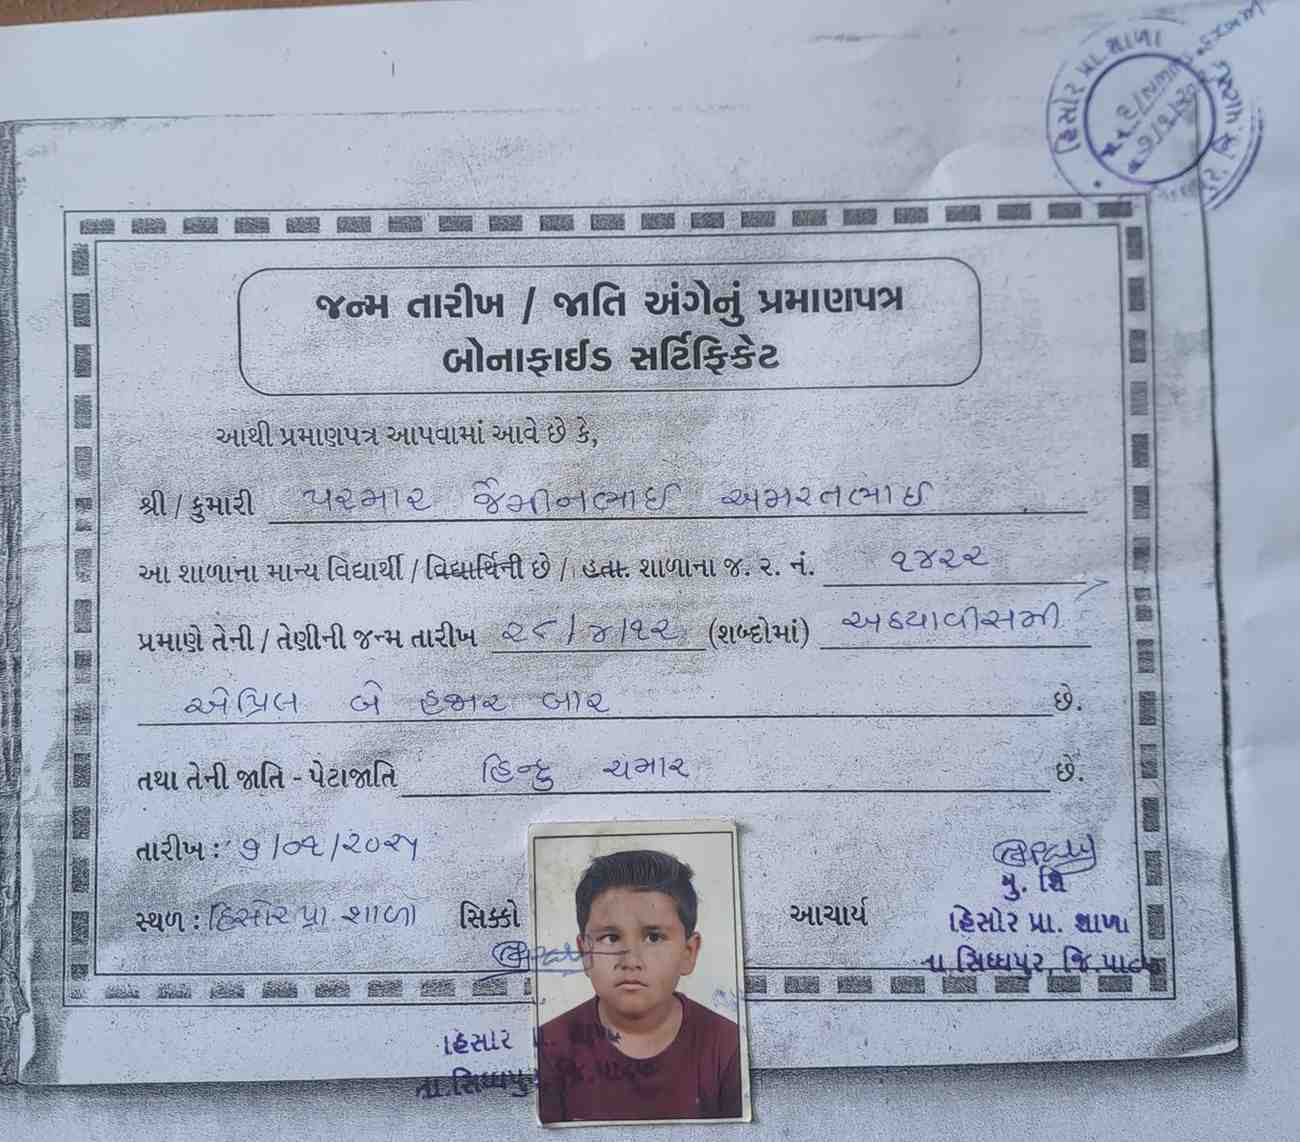 હિસોર પ્રા. શાળા
જન્મ તારીખ / જાતિ અંગેનું પ્રમાણપત્ર
બોનાફાઈડ સર્ટિફિકેટ
આથી પ્રમાણપત્ર આપવામાં આવે છે કે,
શ્રી / કુમારી પરમાર જૈમીનભાઈ અમરતભાઈ
આ શાળાના માન્ય વિદ્યાર્થી / વિદ્યાર્થિની છે / હતા. શાળાના જ. ર. નં. ૧૪૨૨
પ્રમાણે તેની / તેણીની જન્મ તારીખ ૨૮/૪/૧૨ (શબ્દોમાં) અઠયાવીસમી
એપ્રિલ બે હજાર બાર છે.
તથા તેની જાતિ - પેટાજાતિ હિન્દુ ચમાર છે.
તારીખ : ૭/૦૧/૨૦૨૫
મુ. શિ
સ્થળ : હિસોર પ્રા શાળા સિક્કો આચાર્ય હિસોર પ્રા. શાળા
તા.સિધ્ધપુર, જિ.પાટણ
હિસોર પ્રા. શાળા
તા.સિધ્ધપુર, જિ.પાટણ